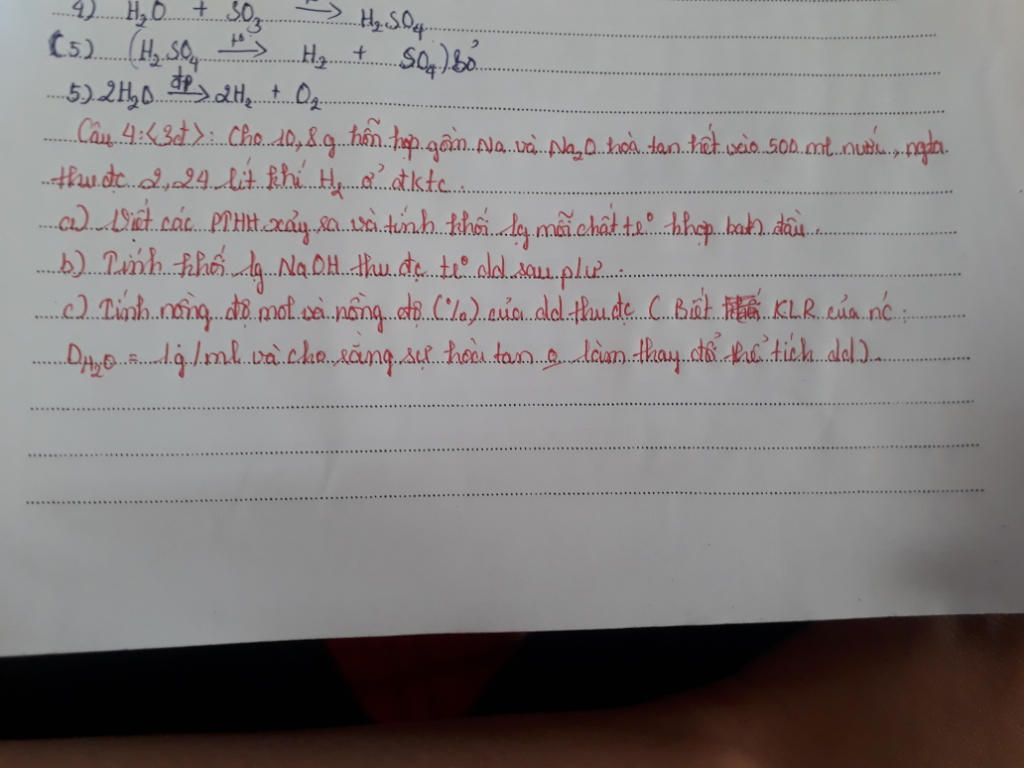 4) H₂O + SO₃ → H₂SO₄
(5) (H₂SO₄ → H₂ + SO₄) bỏ
5) 2H₂O đp→ 2H₂ + O₂
Câu 4: <3đ>: Cho 10,8 g hỗn hợp gồm Na và Na₂O hoà tan hết vào 500 ml nước, ngta
thu đc 2,24 lít khí H₂ ở đktc.
a) Viết các PTHH xảy ra và tính khối lg mỗi chất tr° hhợp ban đầu.
b) Tính khối lg NaOH thu đc tr° dd sau pứ.
c) Tính nồng độ mol và nồng độ (%) của dd thu đc ( Biết KLR của nc:
D H₂O = 1g/ml và cho rằng sự hoà tan o làm thay đổi thể tích dd).